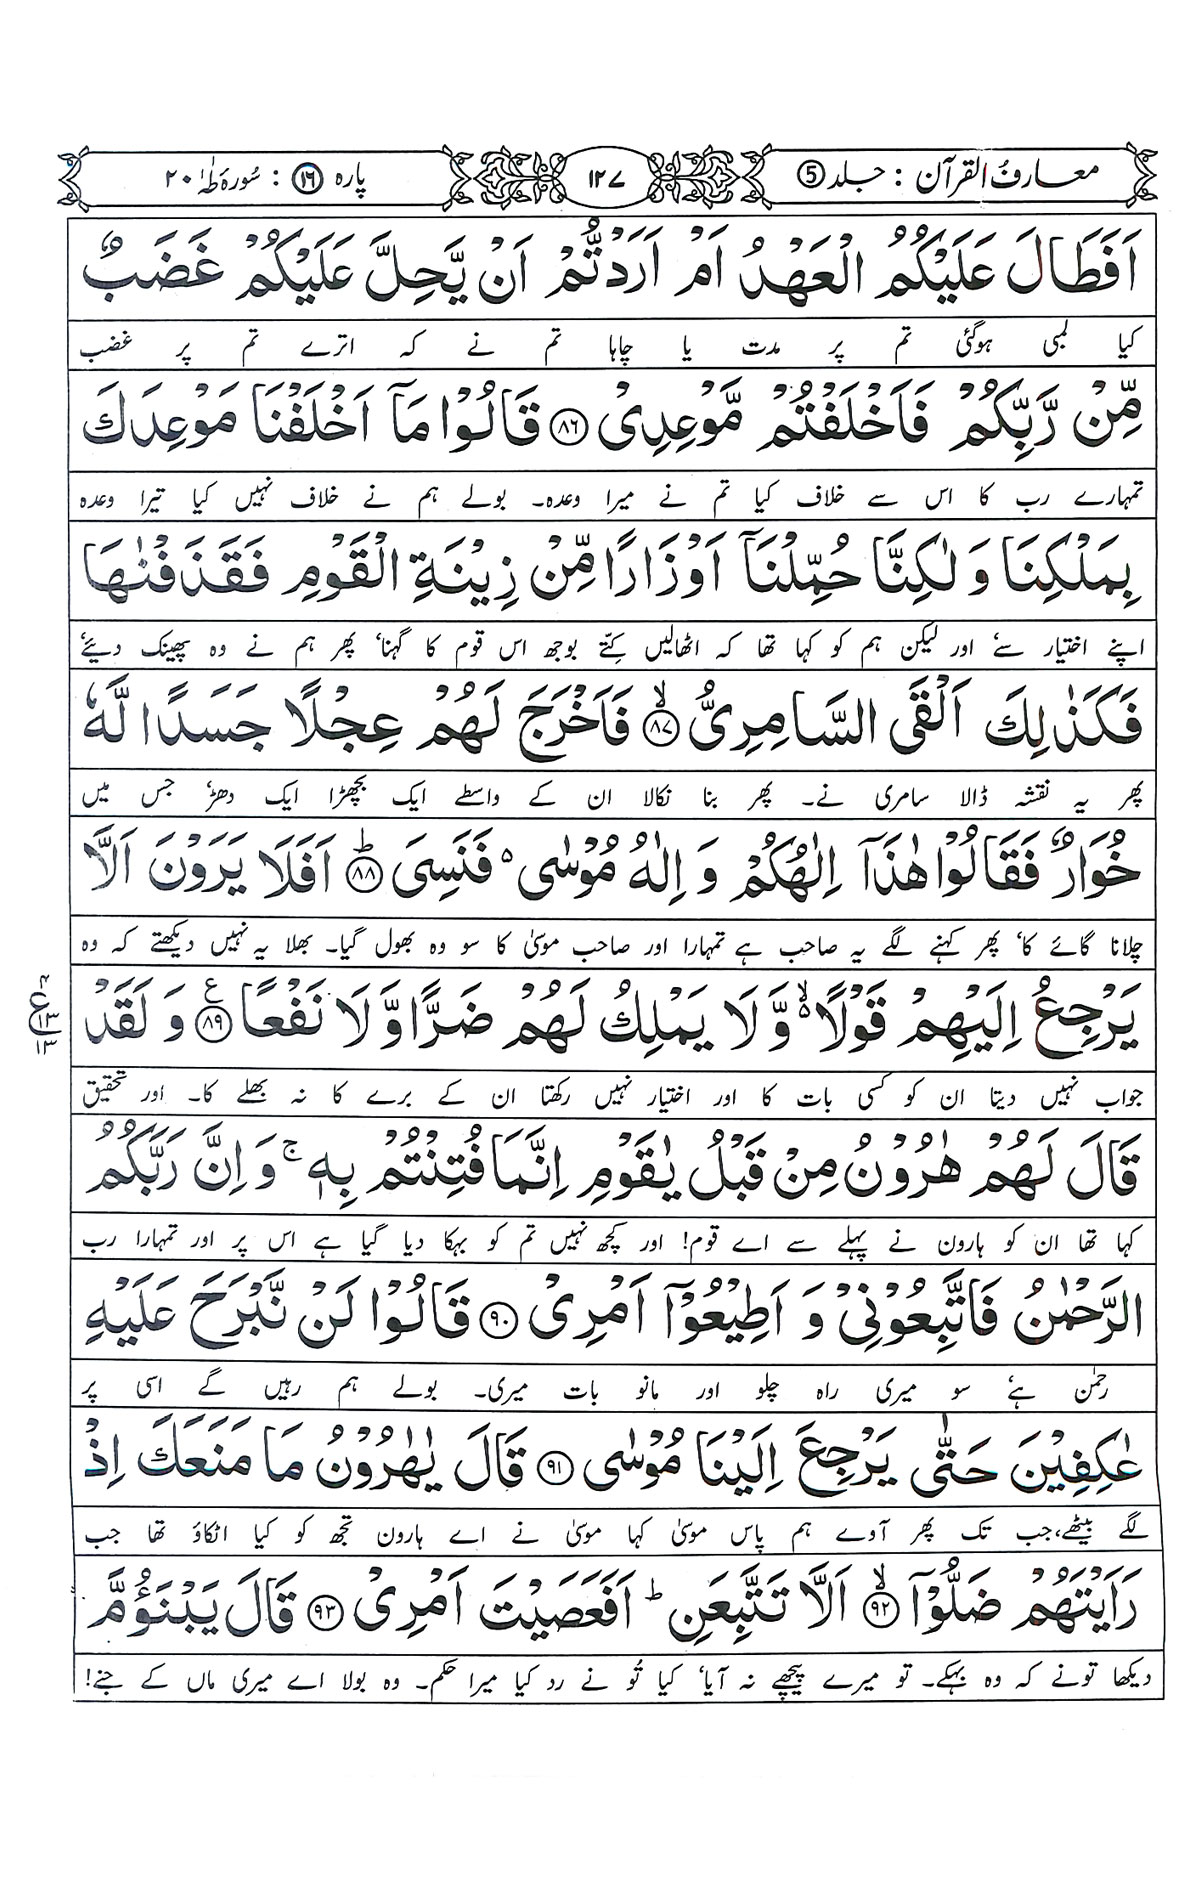 معارف القرآن : جلد ⑤
۱۲۷
پارہ ⑯ : سُورہ طٰہٰ ۲۰
اَفَطَالَ عَلَيْكُمُ الْعَهْدُ اَمْ اَرَدْتُّمْ اَنْ يَّحِلَّ عَلَيْكُمْ غَضَبٌ
کیا لمبی ہوگئی تم پر مدت یا چاہا تم نے کہ اترے تم پر غضب
مِّنْ رَّبِّكُمْ فَاَخْلَفْتُمْ مَّوْعِدِىْ ﴿۸۶﴾ قَالُوْا مَاۤ اَخْلَفْنَا مَوْعِدَكَ
تمہارے رب کا اس سے خلاف کیا تم نے میرا وعدہ۔ بولے ہم نے خلاف نہیں کیا تیرا وعدہ
بِمَلْكِنَا وَ لٰكِنَّا حُمِّلْنَاۤ اَوْزَارًا مِّنْ زِيْنَةِ الْقَوْمِ فَقَذَفْنٰهَا
اپنے اختیار سے، اور لیکن ہم کو کہا تھا کہ اٹھالیں کتے بوجھ اس قوم کا گہنا، پھر ہم نے وہ پھینک دیئے،
فَكَذٰلِكَ اَلْقَى السَّامِرِىُّ ۙ﴿۸۷﴾ فَاَخْرَجَ لَهُمْ عِجْلًا جَسَدًا لَّهٗ
پھر یہ نقشہ ڈالا سامری نے۔ پھر بنا نکالا ان کے واسطے ایک بچھڑا ایک دھڑ، جس میں
خُوَارٌ فَقَالُوْا هٰذَاۤ اِلٰهُكُمْ وَ اِلٰهُ مُوْسٰى ۵ فَنَسِىَ ؕ﴿۸۸﴾ اَفَلَا يَرَوْنَ اَلَّا
چلانا گائے کا، پھر کہنے لگے یہ صاحب ہے تمہارا اور صاحب موسیٰ کا سو وہ بھول گیا۔ بھلا یہ نہیں دیکھتے کہ وہ
يَرْجِعُ اِلَيْهِمْ قَوْلًا ۙ۬ وَّ لَا يَمْلِكُ لَهُمْ ضَرًّا وَّ لَا نَفْعًا ﴿۸۹﴾ ع وَ لَقَدْ
۴ ع ۱۳ ۱۳
جواب نہیں دیتا ان کو کسی بات کا اور اختیار نہیں رکھتا ان کے برے کا نہ بھلے کا۔ اور تحقیق
قَالَ لَهُمْ هٰرُوْنُ مِنْ قَبْلُ يٰقَوْمِ اِنَّمَا فُتِنْتُمْ بِهٖ ۚ وَ اِنَّ رَبَّكُمُ
کہا تھا ان کو ہارون نے پہلے سے اے قوم! اور کچھ نہیں تم کو بہکا دیا گیا ہے اس پر اور تمہارا رب
الرَّحْمٰنُ فَاتَّبِعُوْنِىْ وَ اَطِيْعُوْۤا اَمْرِىْ ﴿۹۰﴾ قَالُوْا لَنْ نَّبْرَحَ عَلَيْهِ
رحمٰن ہے، سو میری راہ چلو اور مانو بات میری۔ بولے ہم رہیں گے اسی پر
عٰكِفِيْنَ حَتّٰى يَرْجِعَ اِلَيْنَا مُوْسٰى ﴿۹۱﴾ قَالَ يٰهٰرُوْنُ مَا مَنَعَكَ اِذْ
لگے بیٹھے، جب تک پھر آوے ہم پاس موسیٰ کہا موسیٰ نے اے ہارون تجھ کو کیا اٹکاؤ تھا جب
رَاَيْتَهُمْ ضَلُّوْۤا ۙ﴿۹۲﴾ اَلَّا تَتَّبِعَنِ ؕ اَفَعَصَيْتَ اَمْرِىْ ﴿۹۳﴾ قَالَ يَبْنَؤُمَّ
دیکھا تونے کہ وہ بہکے۔ تو میرے پیچھے نہ آیا، کیا تُو نے رد کیا میرا حکم۔ وہ بولا اے میری ماں کے جنے!